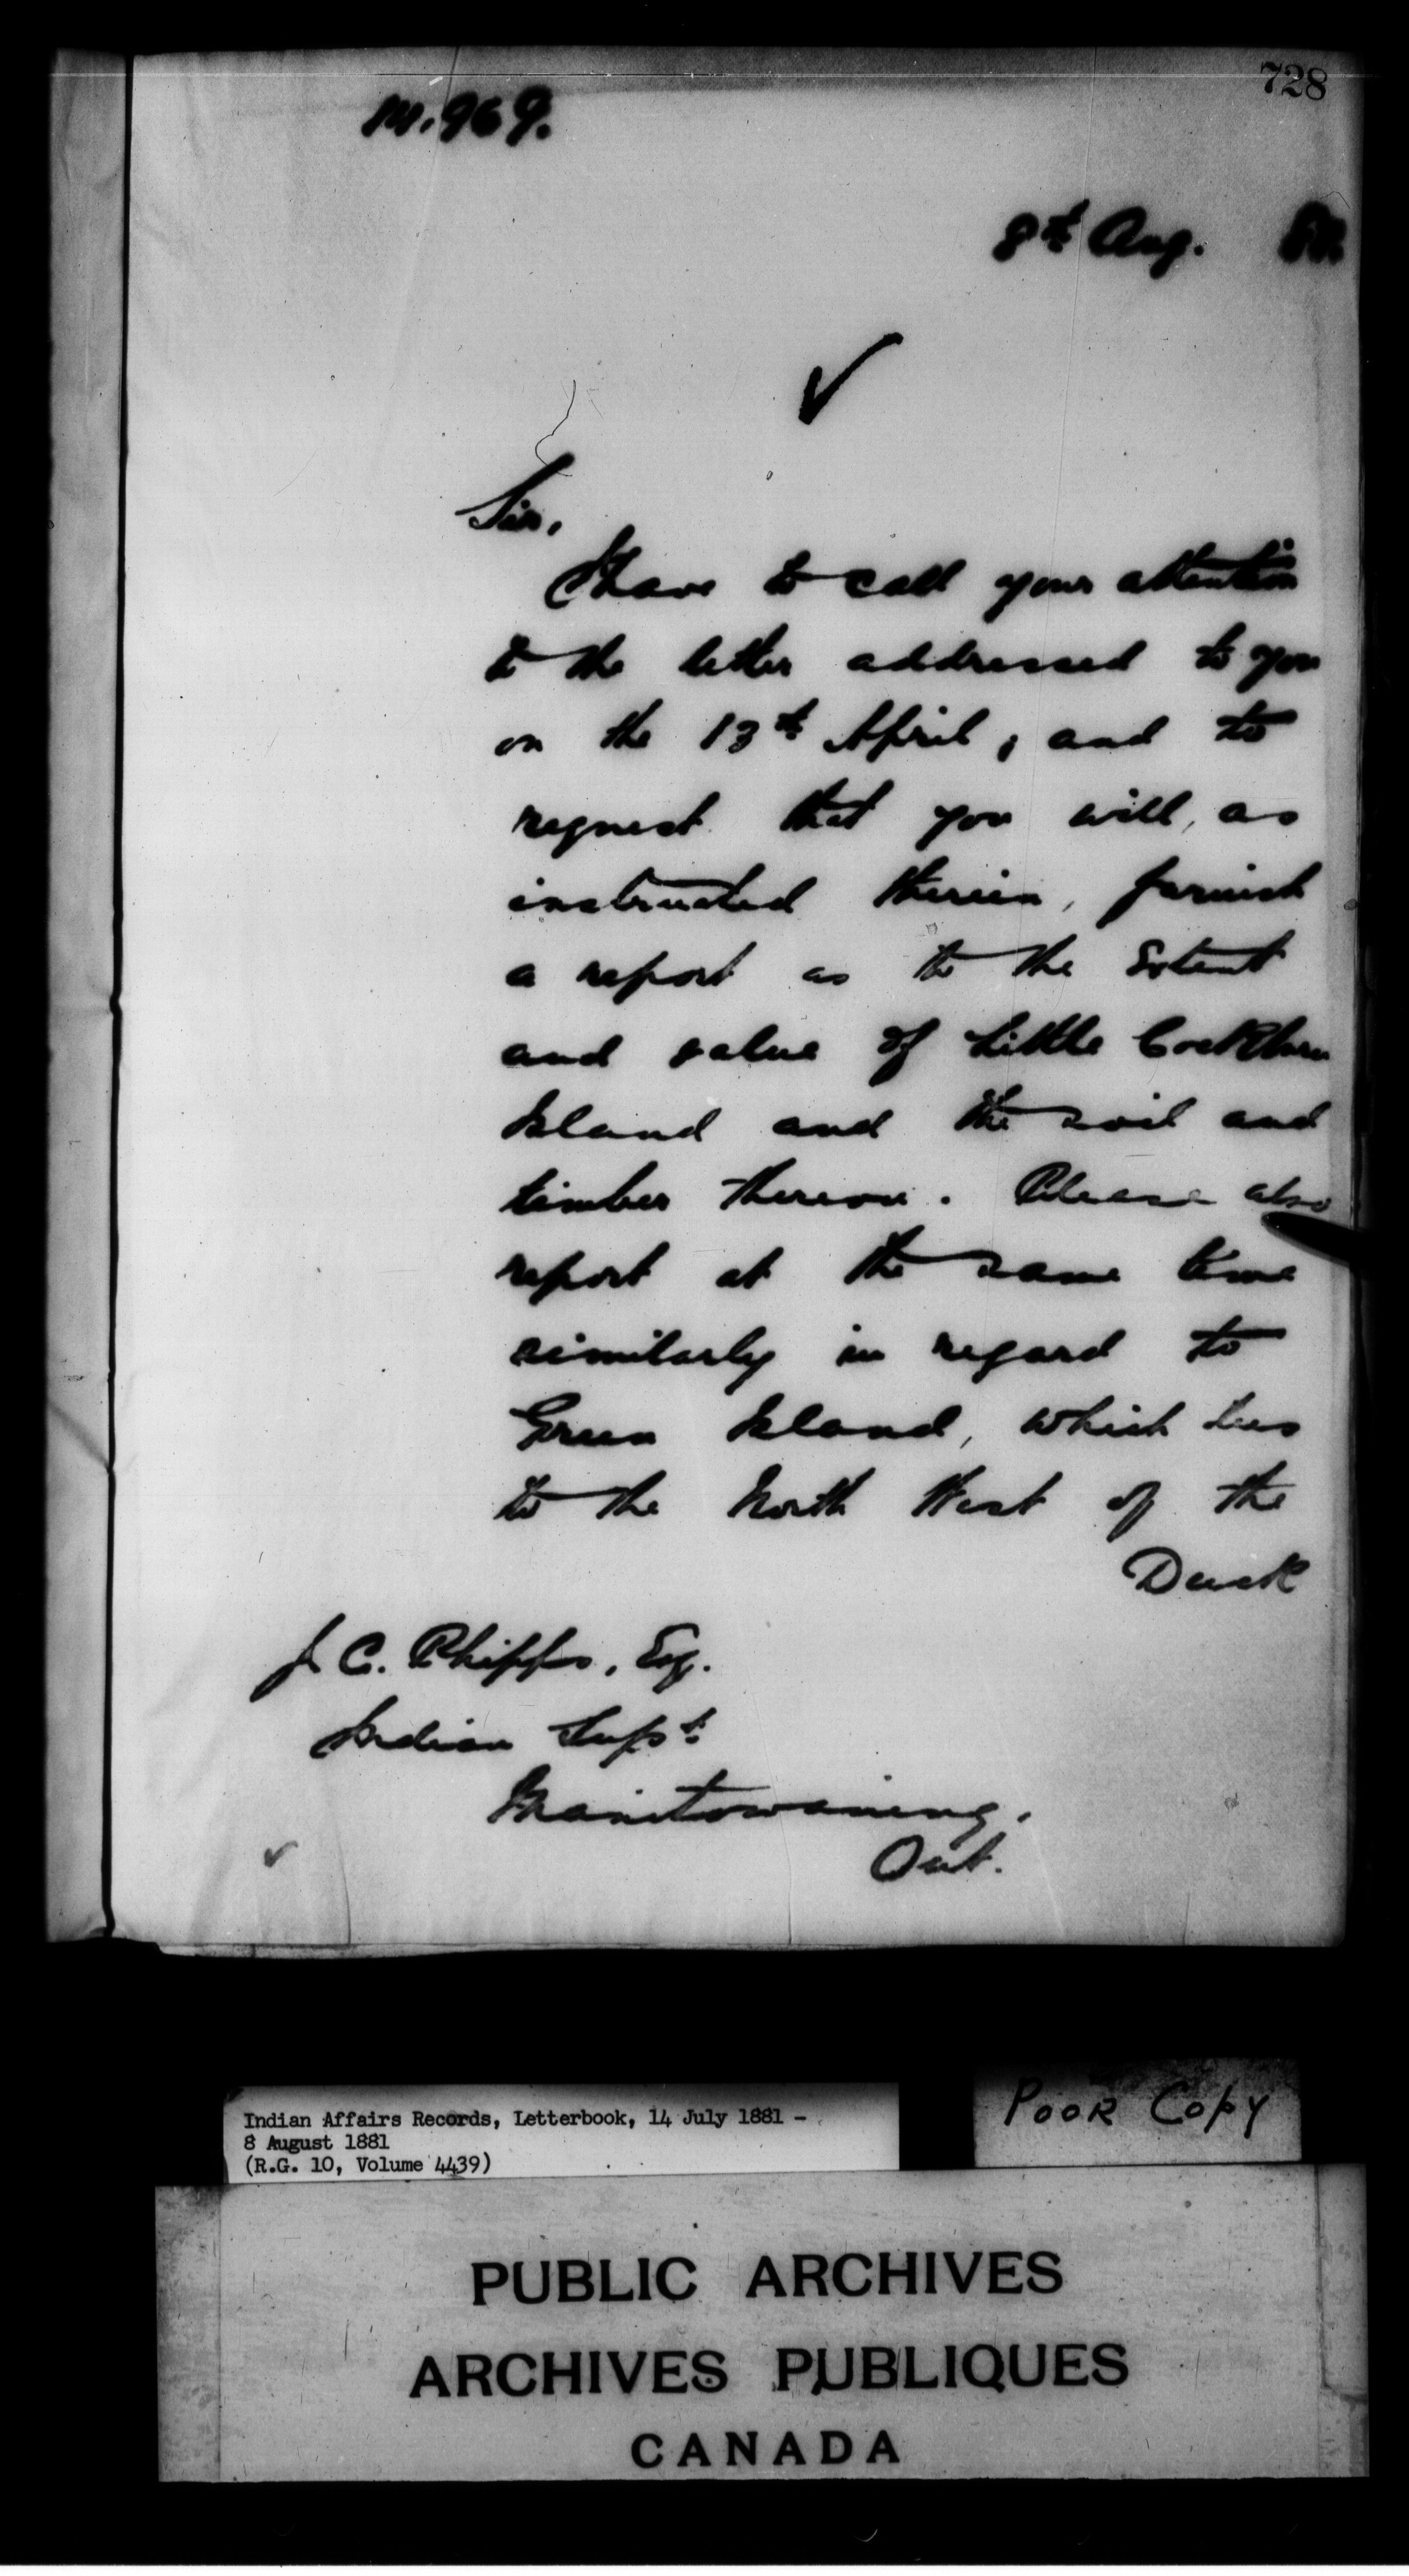 728
M. 969.
8th Aug. 81.
Sir,
I have to call your attention
to the letter addressed to you
on the 13th April, and to
request that you will, as
instructed therein, furnish
a report as to the Extent
and value of Little Cockburn
Island and the soil and
timber thereon. Please also
report at the same time
similarly in regard to
Green Island, which lies
to the North West of the
Duck
J. C. Phipps, Esq.
Indian Supt.
Manitowaning,
Ont.
Indian Affairs Records, Letterbook, 14 July 1881 -
8 August 1881
(R.G. 10, Volume 4439)
POOR COPY
PUBLIC ARCHIVES
ARCHIVES PUBLIQUES
CANADA